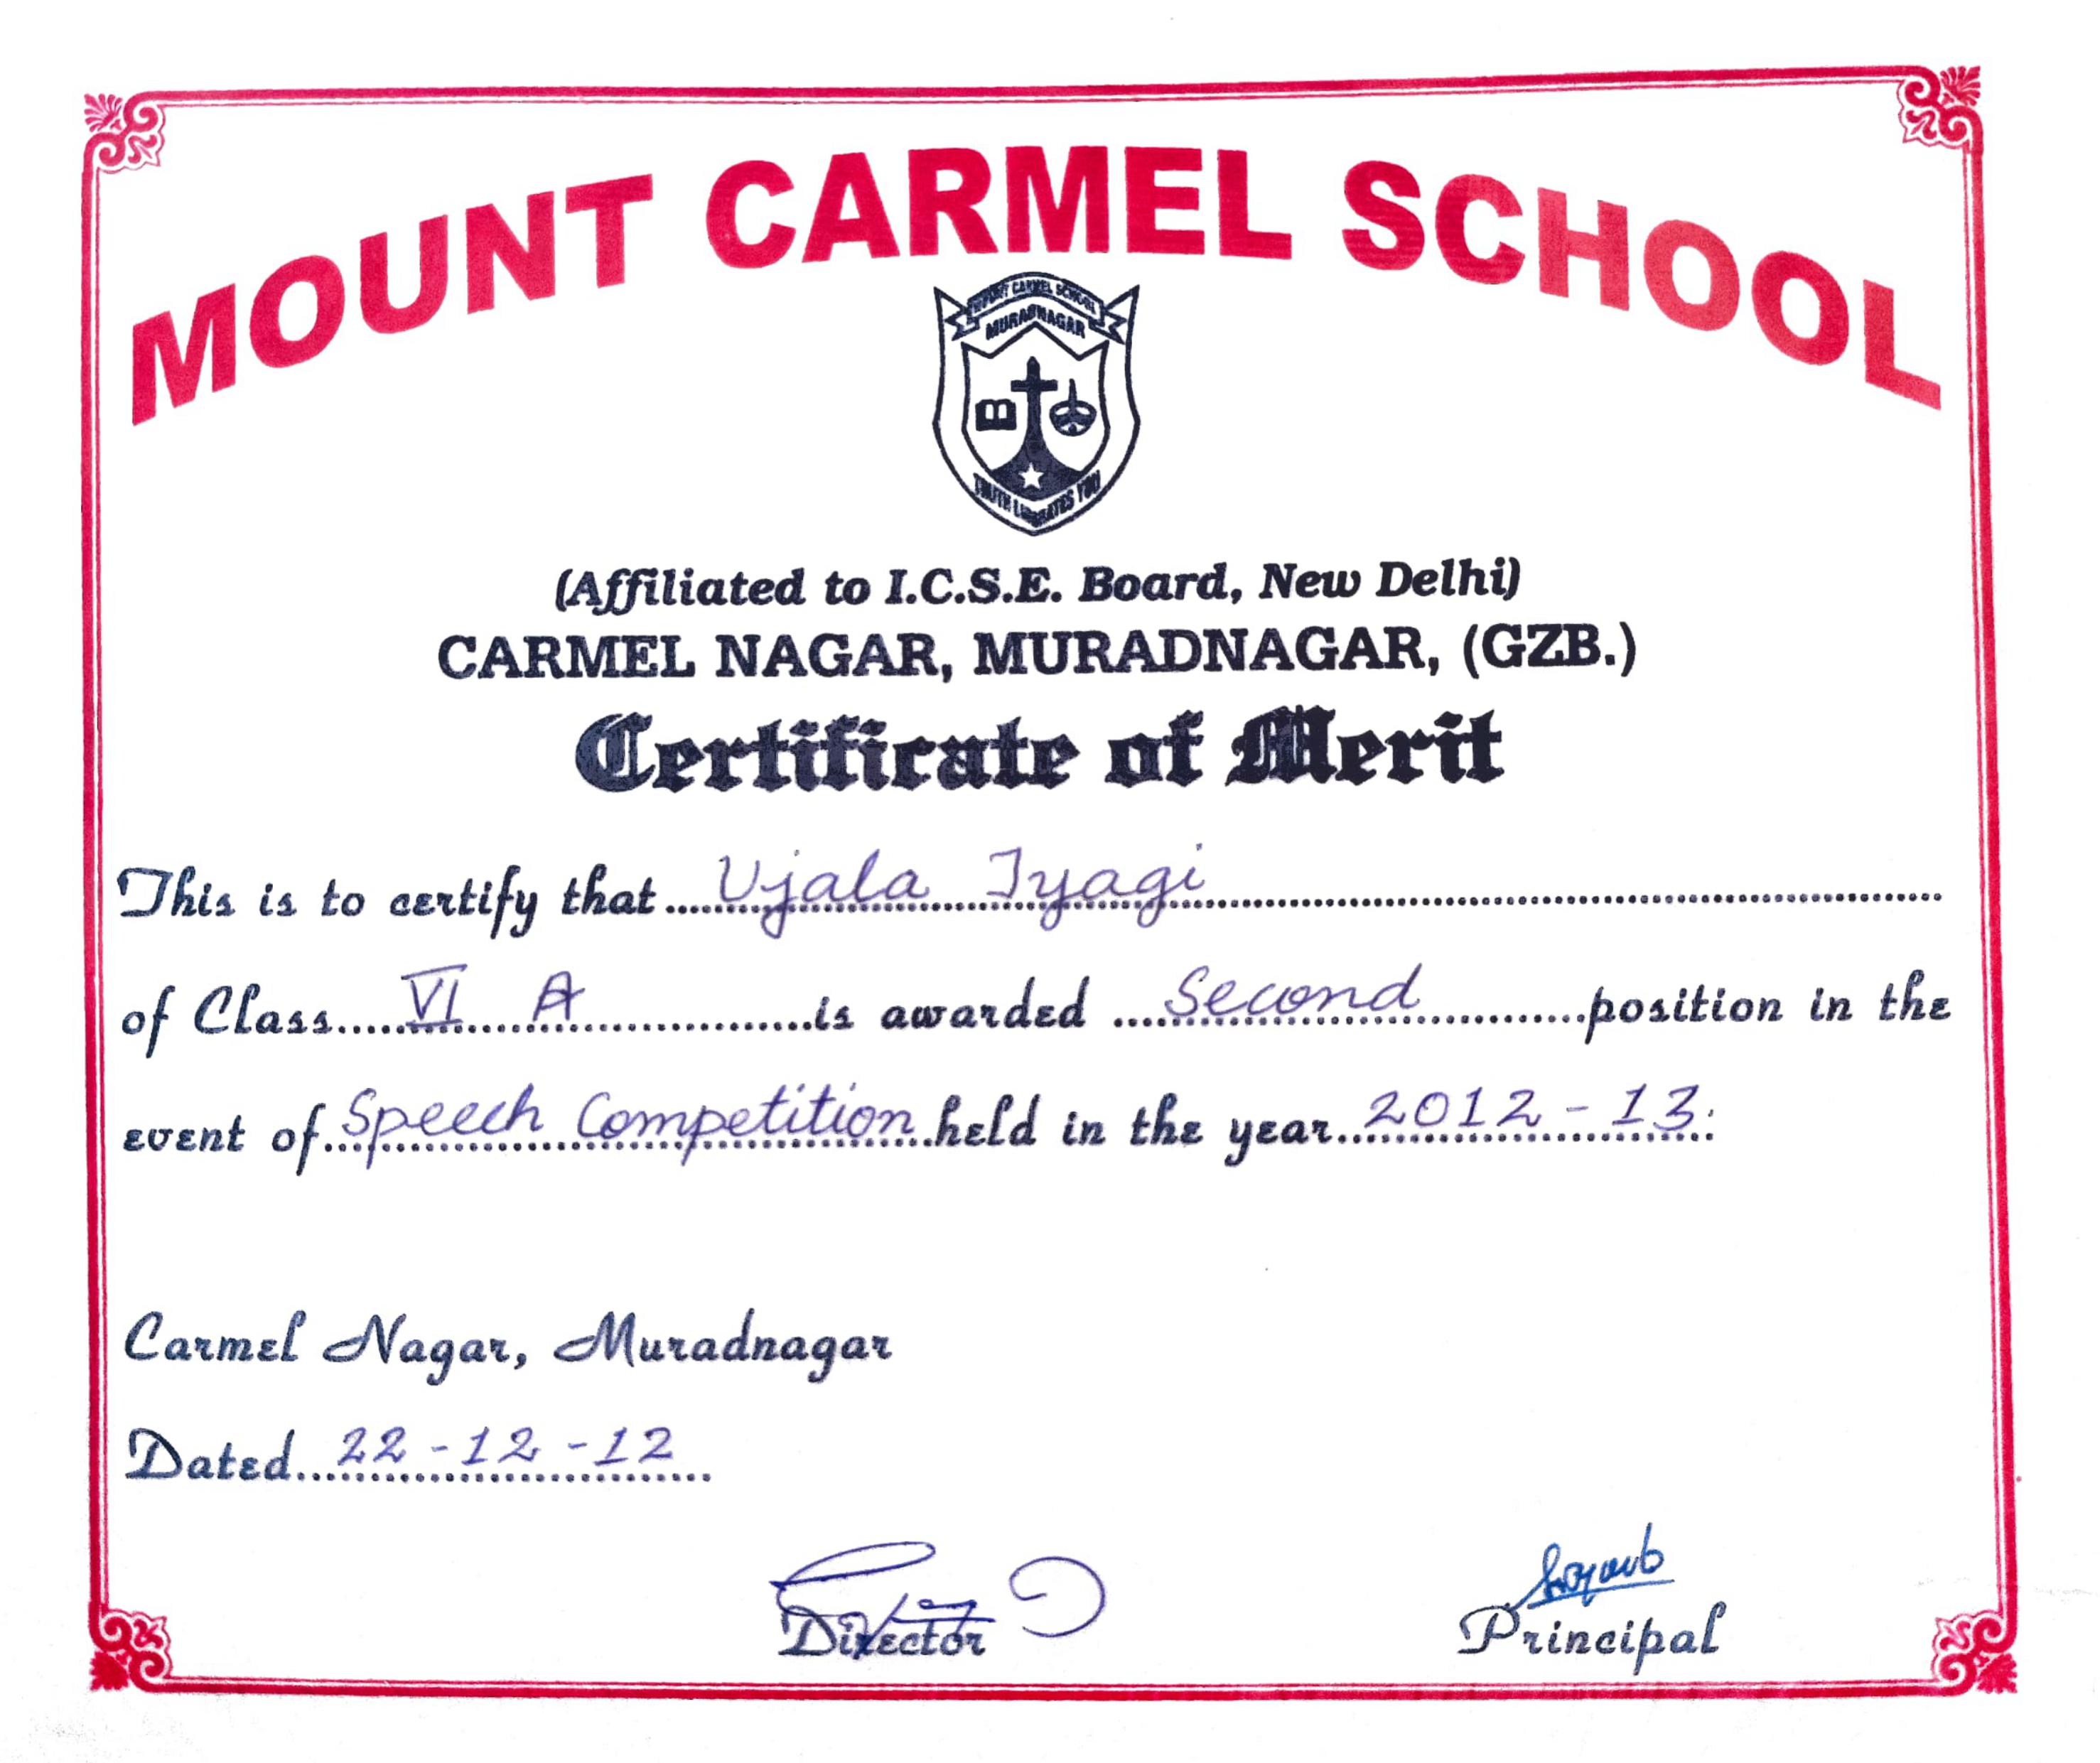 MOUNT CARMEL SCHOOL
MOUNT CARMEL SCHOOL
MURADNAGAR
TRUTH LIBERATES YOU
(Affiliated to I.C.S.E. Board, New Delhi)
CARMEL NAGAR, MURADNAGAR, (GZB.)
Certificate of Merit
This is to certify that Ujala Tyagi
of Class VI A is awarded Second position in the
event of Speech Competition held in the year 2012-13.
Carmel Nagar, Muradnagar
Dated 22-12-12
Director
Principal